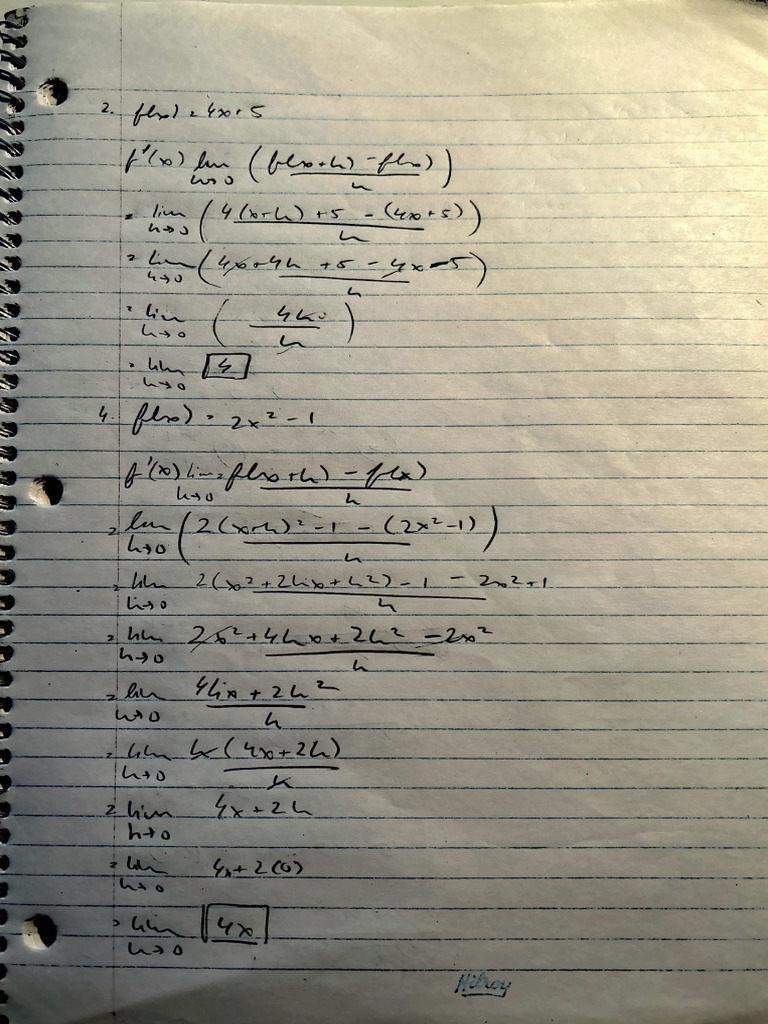 2. f(x) = 4x+5
f'(x) lim h→0 ( f(x+h) - f(x) / h )
= lim h→0 ( 4(x+h) +5 - (4x+5) / h )
= lim h→0 ( 4x+4h +5 - 4x-5 / h )
= lim h→0 ( 4h / h )
= lim h→0 4
4. f(x) = 2x² - 1
f'(x) lim h→0 = f(x+h) - f(x) / h
= lim h→0 ( 2(x+h)² -1 - (2x²-1) / h )
= lim h→0 2(x² + 2hx + h²) - 1 - 2x² + 1 / h
= lim h→0 2x² + 4hx + 2h² - 2x² / h
= lim h→0 4hx + 2h² / h
= lim h→0 h(4x+2h) / h
= lim h→0 4x + 2h
= lim h→0 4x + 2(0)
= lim h→0 4x
Hilroy